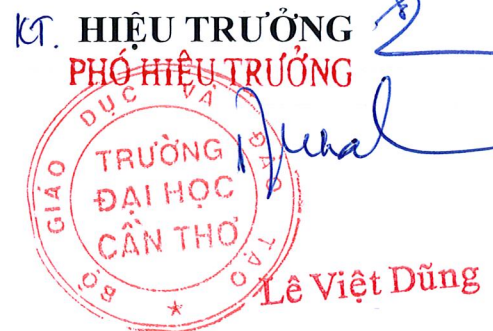 KT. HIỆU TRƯỞNG
PHÓ HIỆU TRƯỞNG
BỘ GIÁO DỤC VÀ ĐÀO TẠO
TRƯỜNG
ĐẠI HỌC
CẦN THƠ
Lê Việt Dũng